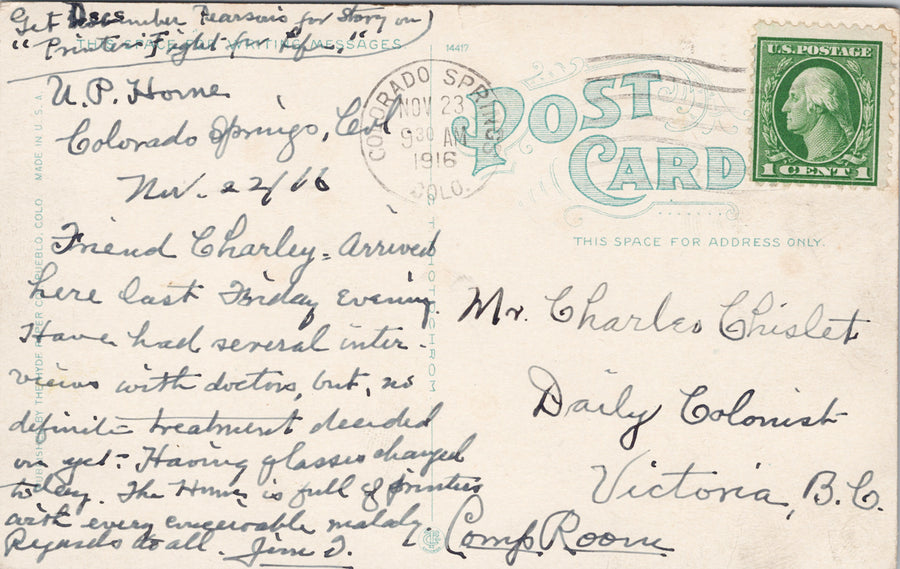 Get Decs ember Pearson's for Story on
"Printer's Fight for Life,"
THIS SPACE FOR WRITING MESSAGES
U.P. Home
Colorado Springs, Col
Nov. 22/16
Friend Charley = Arrived
here last Friday Evening.
Have had several inter-
views with doctors, but, no
definite treatment decided
on yet. Having glasses changed
today. The Home is full of printers
with every conceivable malady.
Regards to all. Jim D.
MADE IN U.S.A.
14417
COLORADO SPRINGS
NOV 23
9 30 AM
1916
COLO.
POST CARD
THIS SPACE FOR ADDRESS ONLY.
U.S. POSTAGE
1 CENT 1
Mr. Charles Chislet
Daily Colonist
Victoria, B.C.
Comp Room